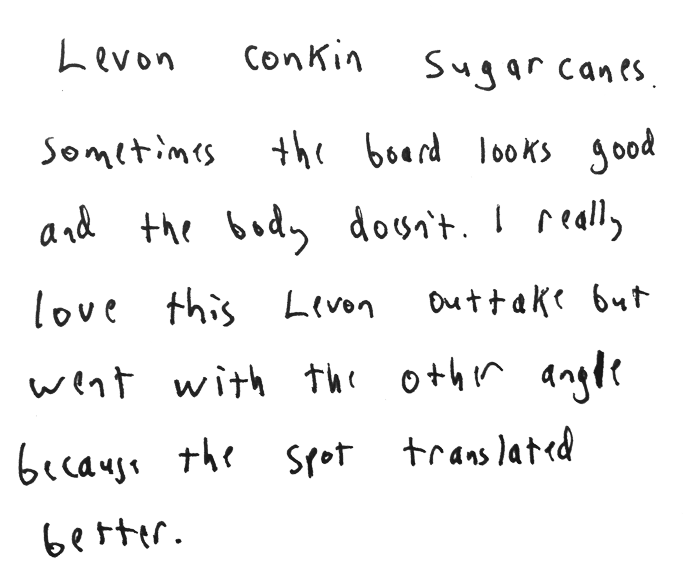 Levon conkin sugarcanes.
Sometimes the board looks good
and the body doesn't. I really
love this Levon outtake but
went with the other angle
because the spot translated
better.